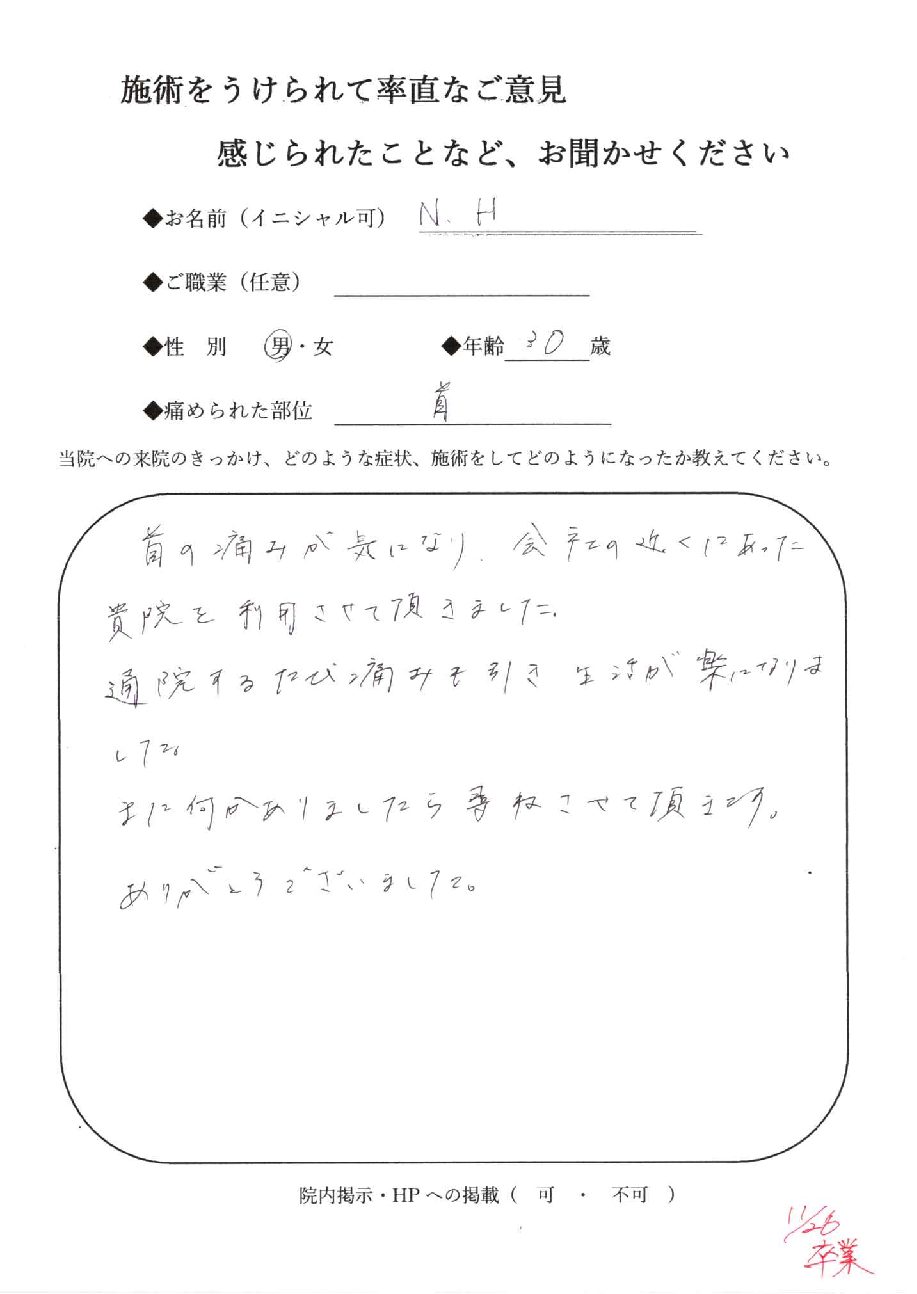 施術をうけられて率直なご意見
感じられたことなど、お聞かせください
◆お名前（イニシャル可） N. H
◆ご職業（任意）
◆性 別 男・女 ◆年齢 30 歳
◆痛められた部位 首
当院への来院のきっかけ、どのような症状、施術をしてどのようになったか教えてください。
首の痛みが気になり、会社の近くにあった
貴院を利用させて頂きました。
通院するたび痛みも引き生活が楽になりま
した。
また何かありましたら尋ねさせて頂きます。
ありがとうございました。
院内掲示・HPへの掲載（ 可 ・ 不可 ）
11/26
卒業